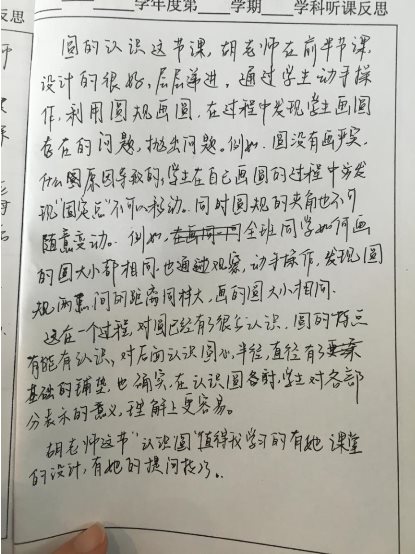 学年度第 学期 学科听课反思
圆的认识这节课，胡老师在前半节课，
设计的很好，层层递进，通过学生动手操
作，利用圆规画圆，在过程中发现学生画圆
存在的问题，抛出问题。例如，圆没有画严实，
什么原因导致的，学生在自己画圆的过程中发
现“固定点”不可以移动。同时圆规的夹角也不可
随意变动。例如，全班同学如何画
的圆大小都相同，也通过观察，动手操作，发现圆
规两间的距离同样大，画的圆大小相同。
这在一个过程，对圆已经有了很多认识，圆的特点
有能有认识，对后面认识圆心，半径，直径有了
基础的铺垫，也确实，在认识圆各时，学生对各部
分表示的意义，理解上更容易。
胡老师这节“认识圆”值得我学习的有她课堂
的设计，有她的提问技巧。